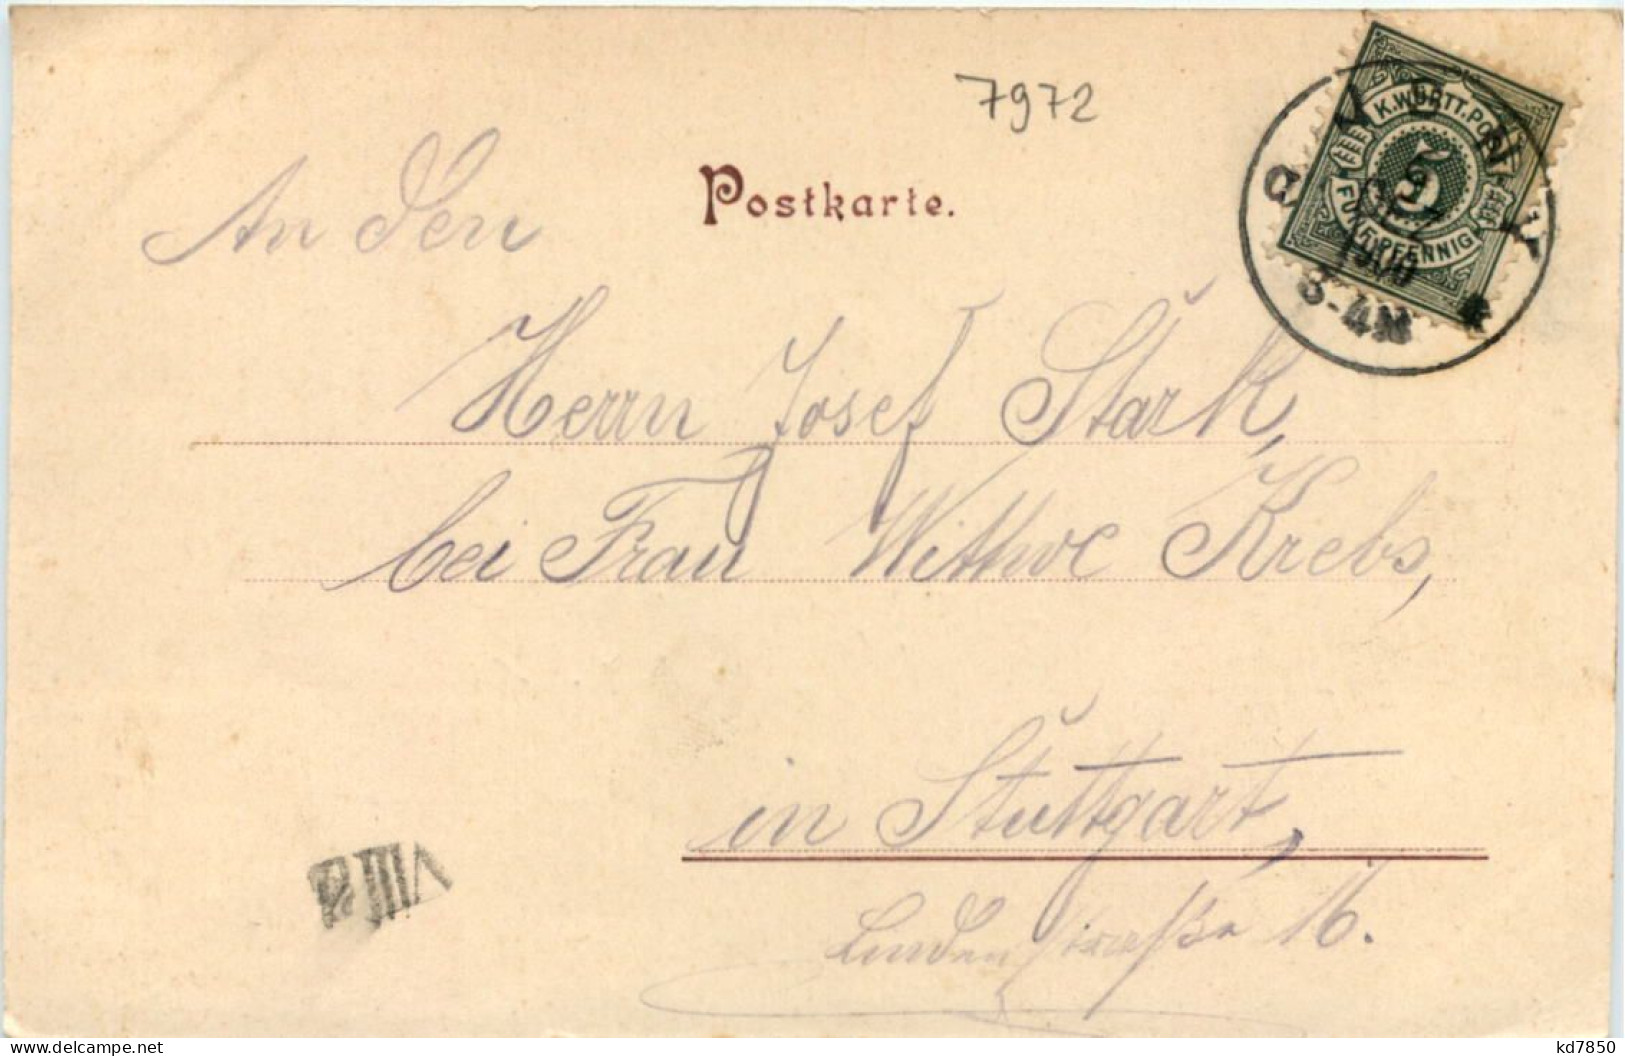 7972
Postkarte.
K. WÜRTT. POST
5
FÜNF PFENNIG
1900
3-4N
An den
Herrn Josef Stark,
bei Frau Wittwe Krebs,
in Stuttgart,
Lindenstraße 16.
VIII
www.delcampe.net
kd7850